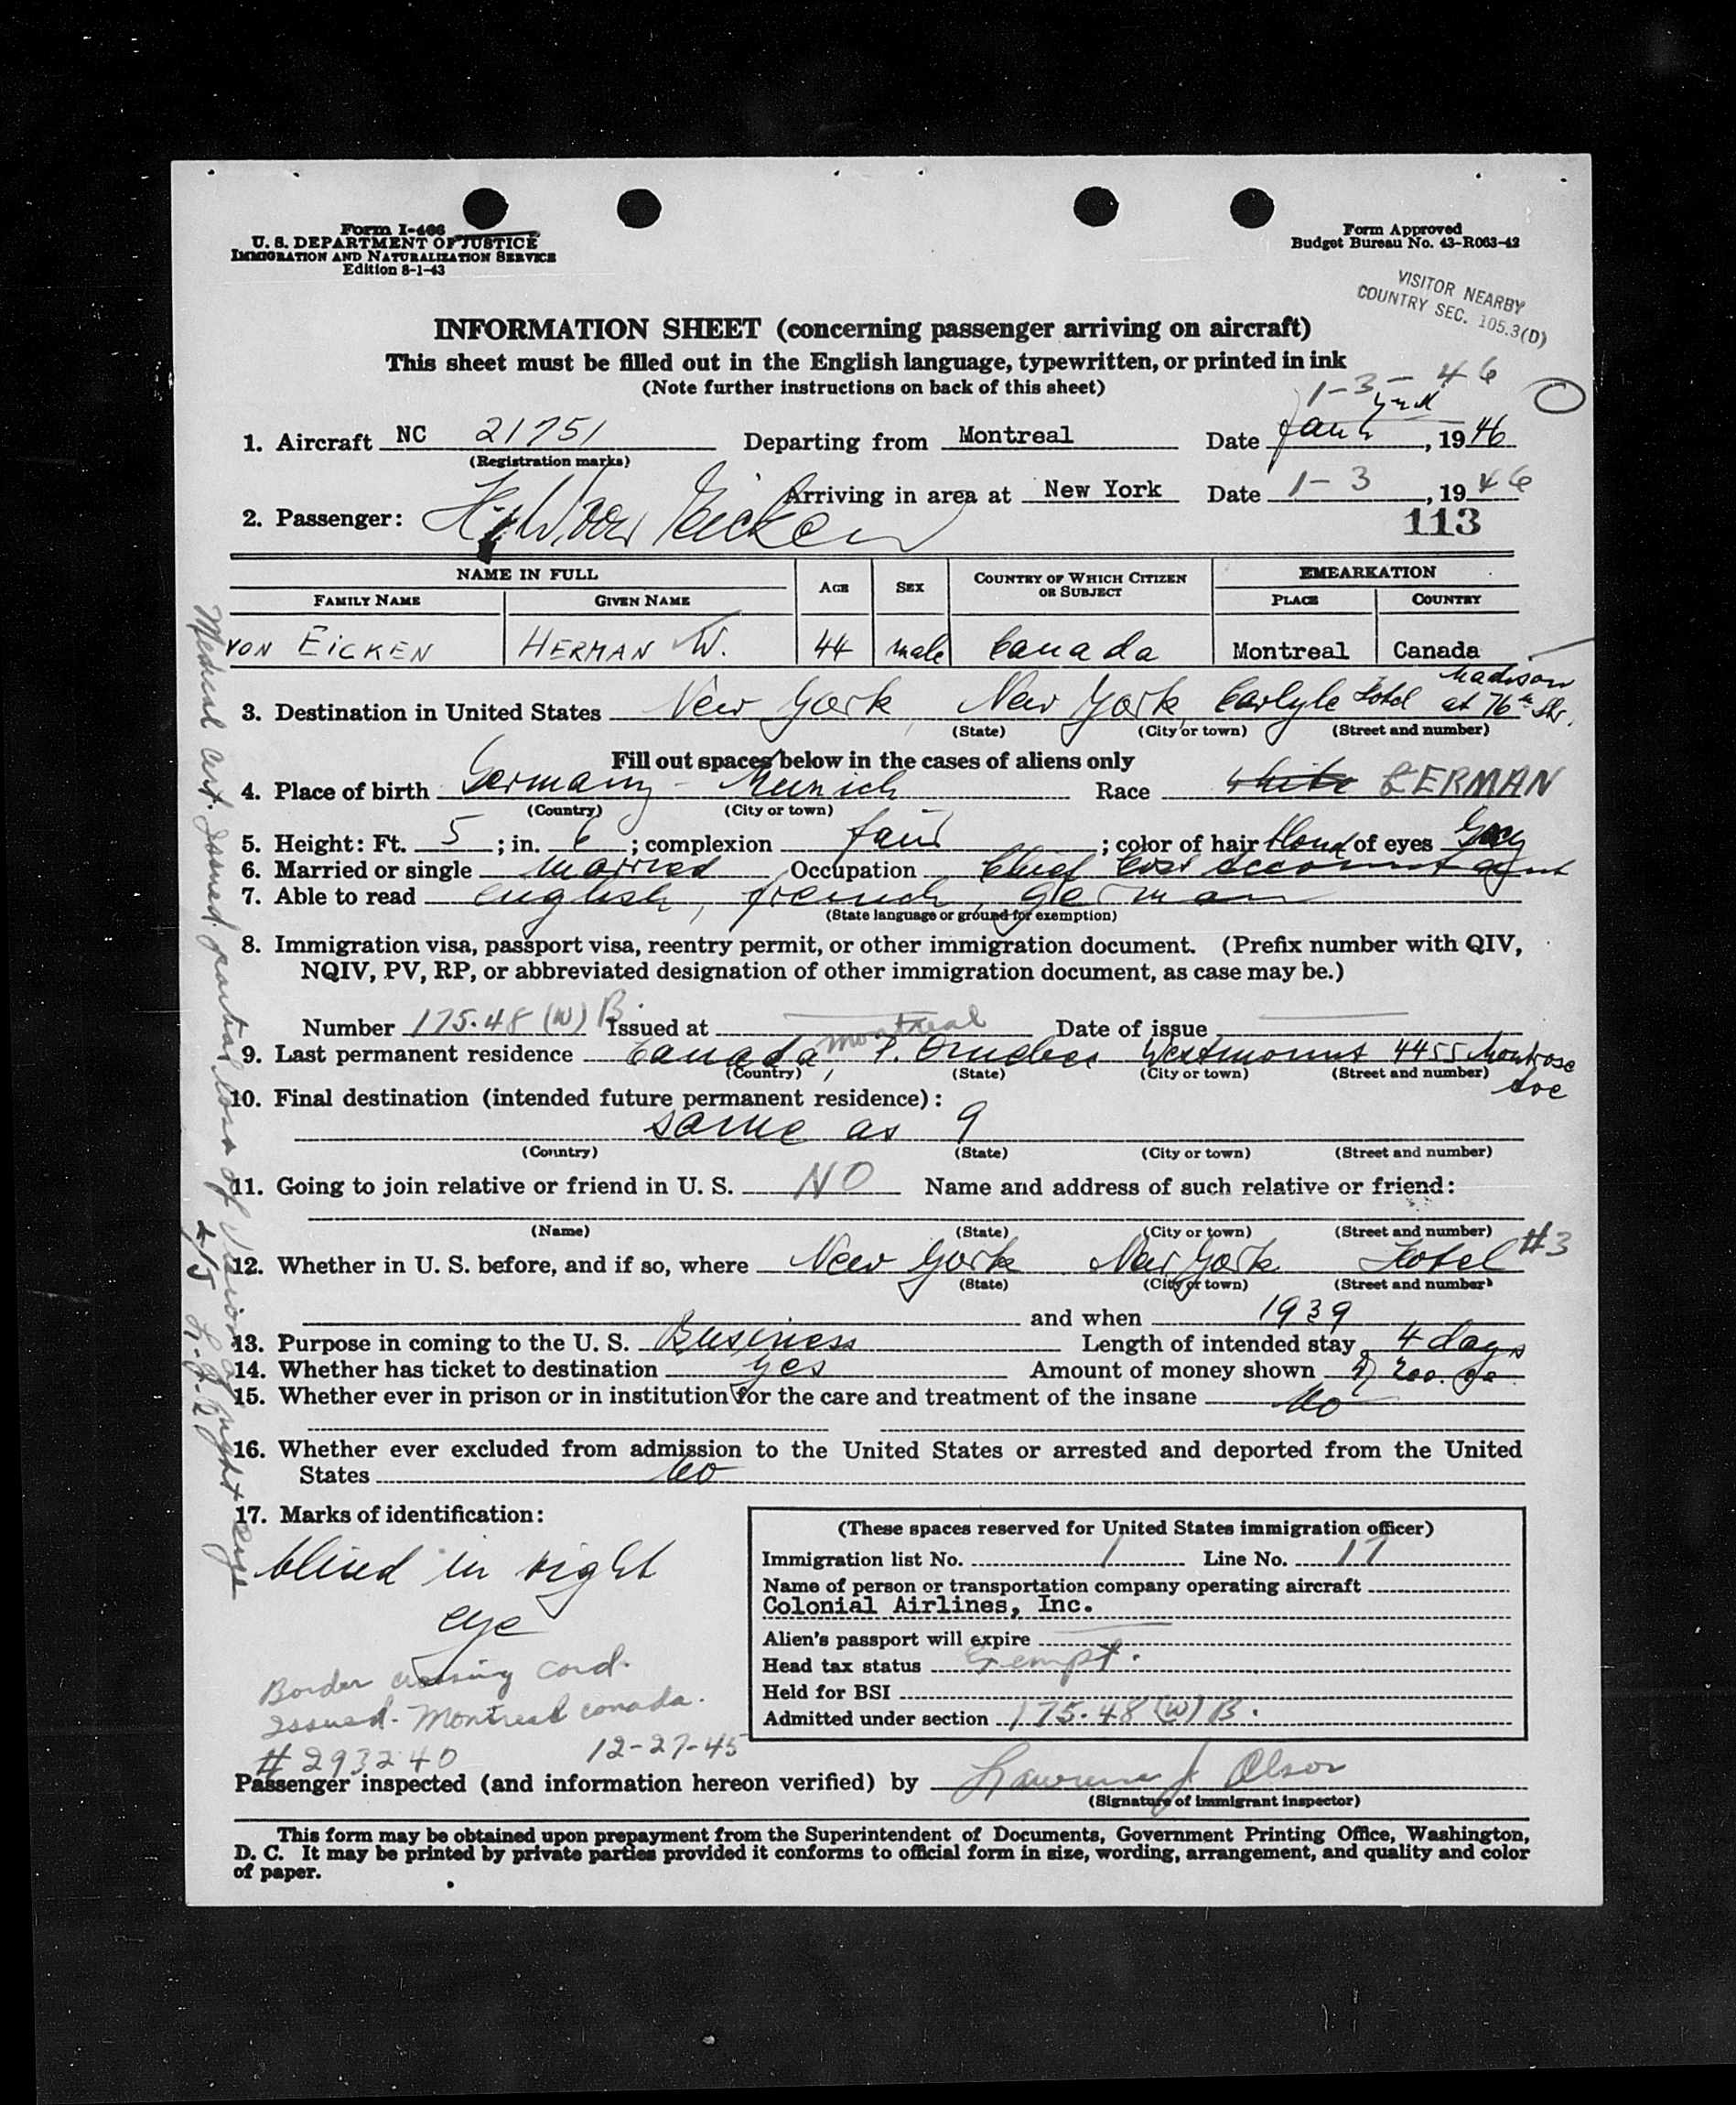 Form I-466
U. S. DEPARTMENT OF JUSTICE
IMMIGRATION AND NATURALIZATION SERVICE
Edition 8-1-43
Form Approved
Budget Bureau No. 43-R063-42
VISITOR NEARBY
COUNTRY SEC. 105.3(D)
INFORMATION SHEET (concerning passenger arriving on aircraft)
This sheet must be filled out in the English language, typewritten, or printed in ink
(Note further instructions on back of this sheet)
1-3-46
1. Aircraft NC 21751 Departing from Montreal Date Jan, 1946
(Registration marks)
Arriving in area at New York Date 1-3, 1946
2. Passenger: H. W. von Eicken
113
NAME IN FULL AGE SEX COUNTRY OF WHICH CITIZEN OR SUBJECT EMBARKATION
FAMILY NAME GIVEN NAME PLACE COUNTRY
VON EICKEN HERMAN W. 44 male Canada Montreal Canada
3. Destination in United States New York, New York, Carlyle Hotel Madison at 76th Str.
(State) (City or town) (Street and number)
Fill out spaces below in the cases of aliens only
4. Place of birth Germany - Munich Race white GERMAN
(Country) (City or town)
5. Height: Ft. 5; in. 6; complexion fair; color of hair blond of eyes Gray
6. Married or single married Occupation Chief Cost accountant
7. Able to read english, french, german
(State language or ground for exemption)
8. Immigration visa, passport visa, reentry permit, or other immigration document. (Prefix number with QIV,
NQIV, PV, RP, or abbreviated designation of other immigration document, as case may be.)
Number 175.48 (W) B Issued at Montreal Date of issue
9. Last permanent residence Canada, P. Quebec Westmount 4455 Montrose Ave
(Country) (State) (City or town) (Street and number)
10. Final destination (intended future permanent residence):
same as 9
(Country) (State) (City or town) (Street and number)
11. Going to join relative or friend in U. S. NO Name and address of such relative or friend:
(Name) (State) (City or town) (Street and number)
12. Whether in U. S. before, and if so, where New York New York Hotel #3
(State) (City or town) (Street and number)
and when 1939
13. Purpose in coming to the U. S. Business Length of intended stay 4 days
14. Whether has ticket to destination yes Amount of money shown $ 200.00
15. Whether ever in prison or in institution for the care and treatment of the insane No
16. Whether ever excluded from admission to the United States or arrested and deported from the United
States No
17. Marks of identification:
blind in right
eye
Border crossing card.
Issued - Montreal Canada.
#293240 12-27-45
(These spaces reserved for United States immigration officer)
Immigration list No. 1 Line No. 17
Name of person or transportation company operating aircraft
Colonial Airlines, Inc.
Alien's passport will expire
Head tax status Exempt.
Held for BSI
Admitted under section 175.48 (W) B.
Passenger inspected (and information hereon verified) by Lawrence J. Olson
(Signature of immigrant inspector)
This form may be obtained upon prepayment from the Superintendent of Documents, Government Printing Office, Washington,
D. C. It may be printed by private parties provided it conforms to official form in size, wording, arrangement, and quality and color
of paper.
Medical cert. issued. partial loss of vision of right eye